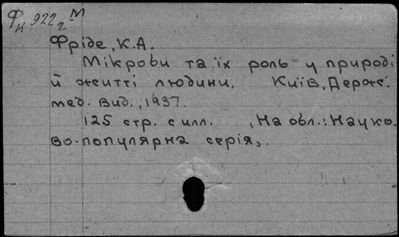 Фк 922г М
Фріде, К.А.
Мікроби та їх роль у природі
й житті людини. Київ, Держ.
мед. вид., 1937.
125 стр. с илл. , На обл.: Науко
во-популярна серія,.